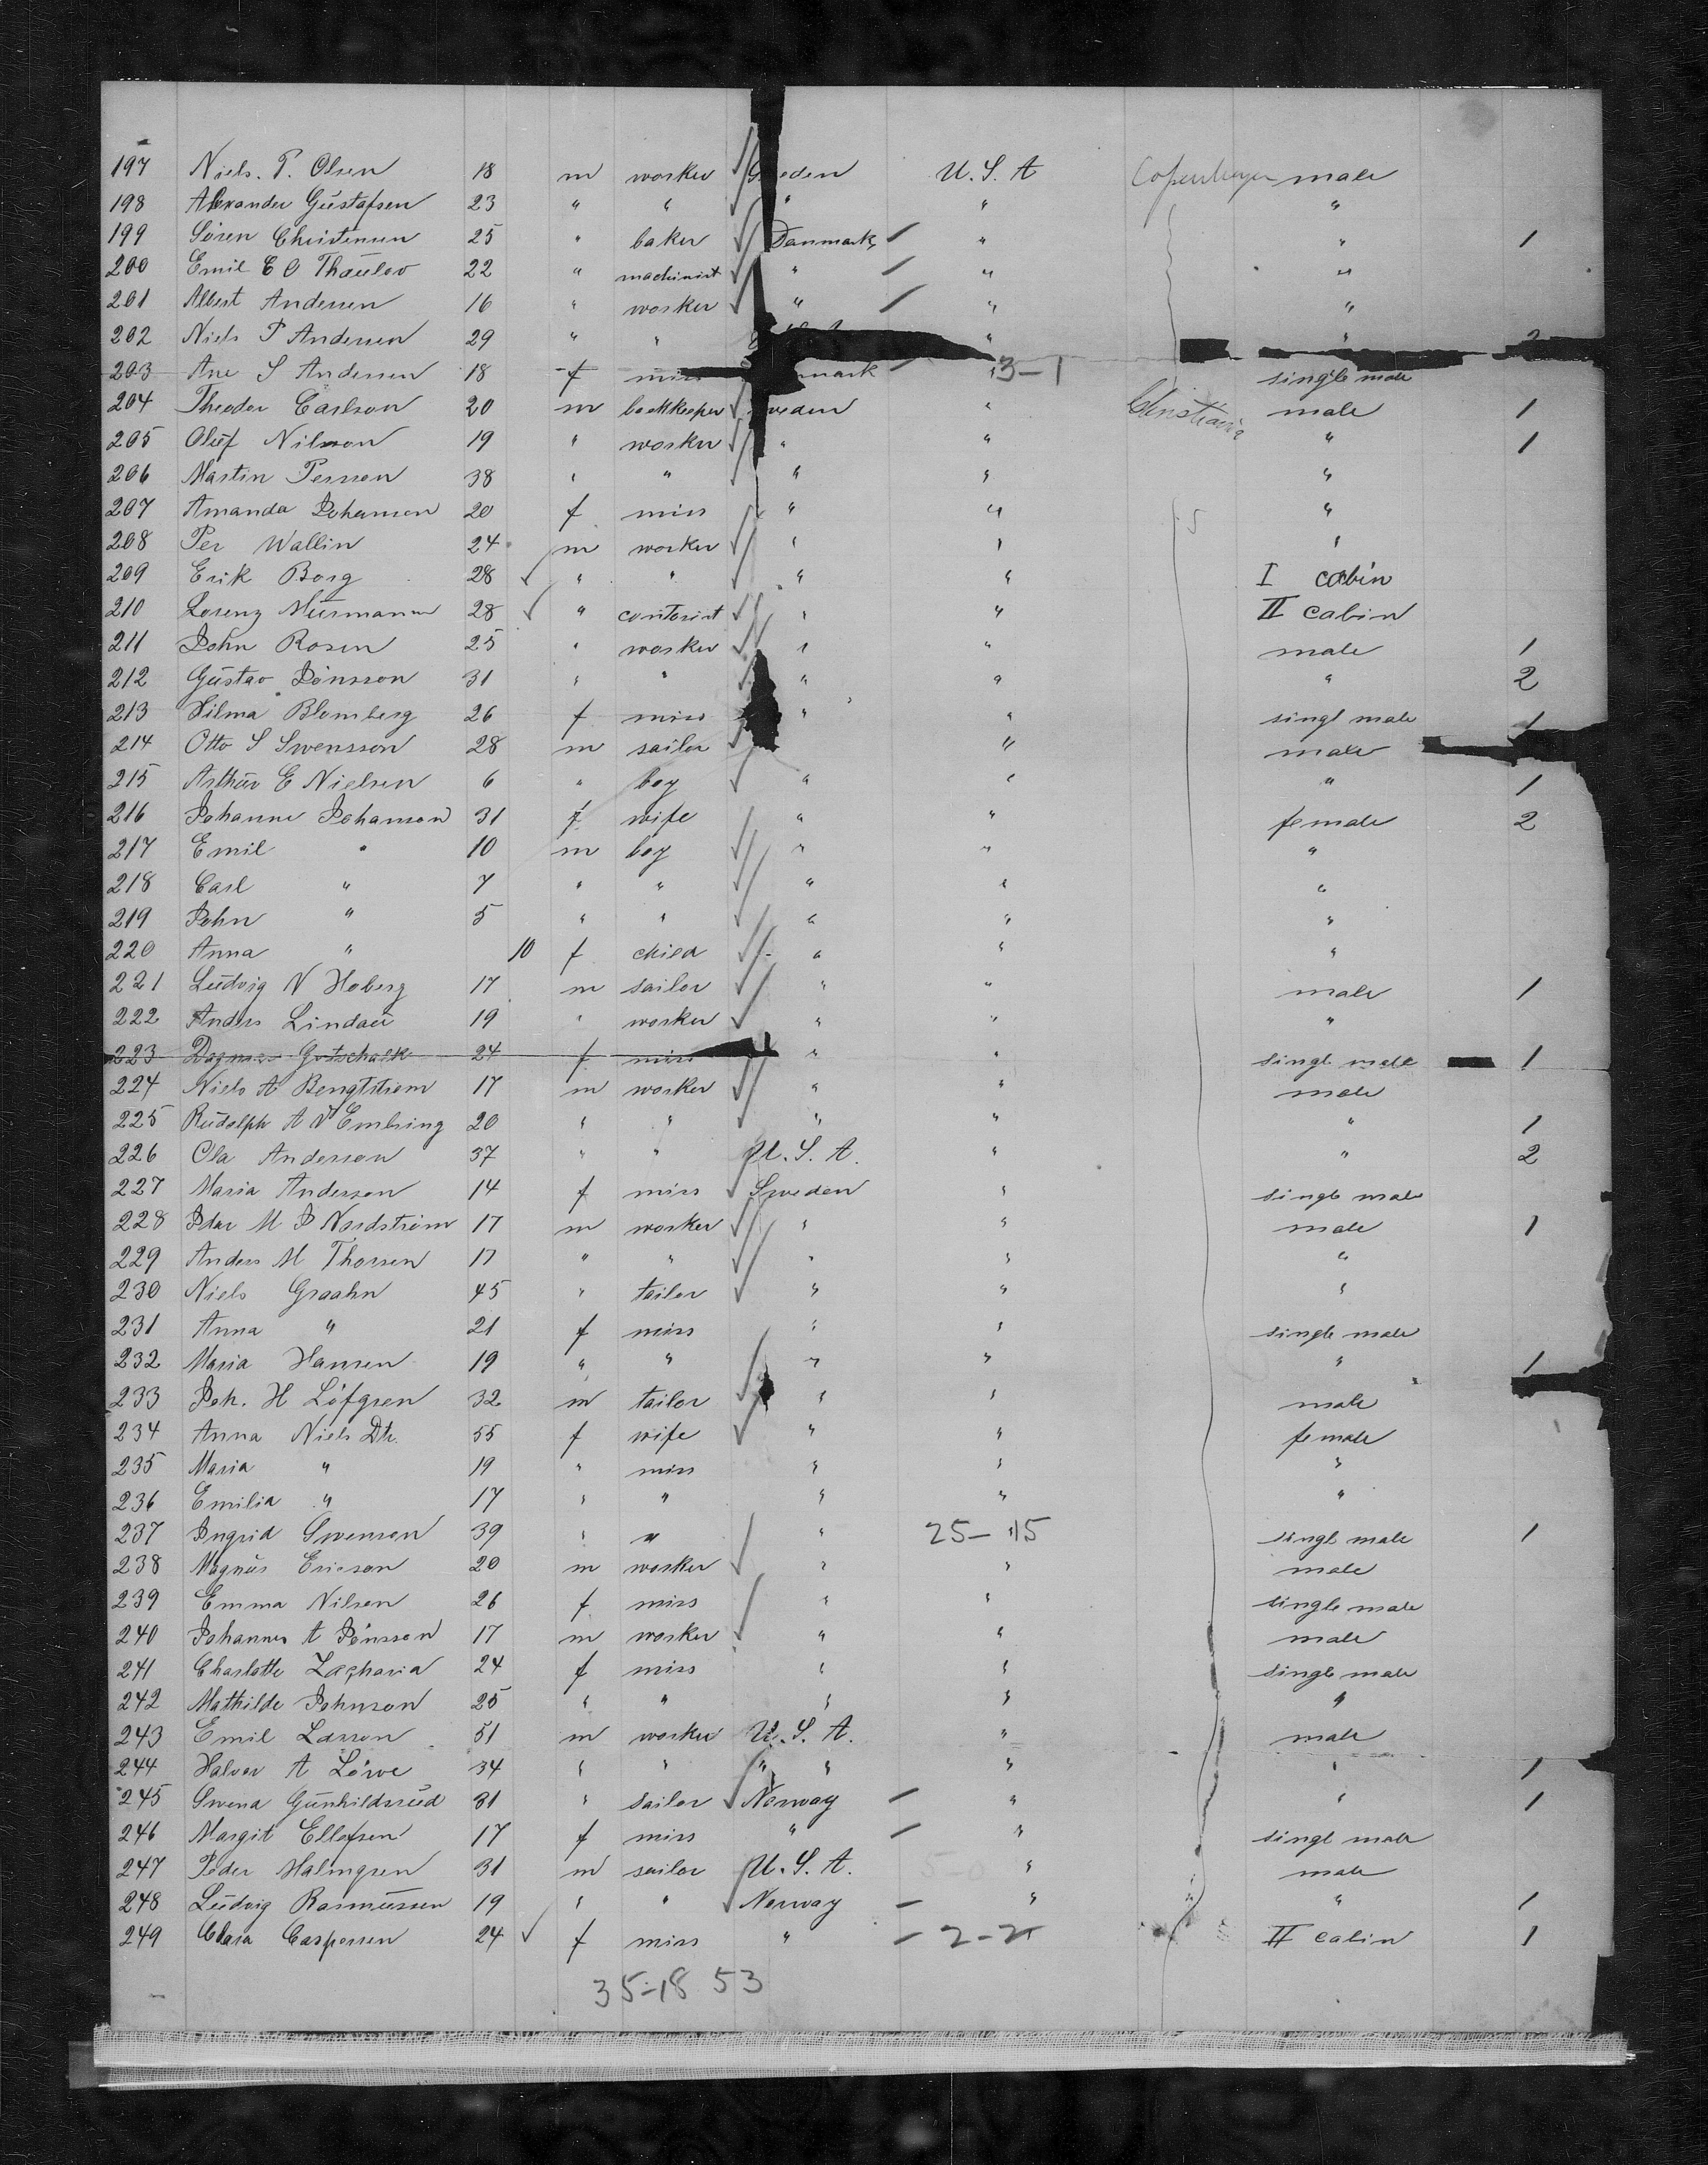 197 Niels. P. Olsen 18 m worker eden U. S. A Copenhagen male
198 Alexander Gustafsen 23 " " " " "
199 Sören Christensen 25 " baker Danmark " " 1
200 Emil E O Thaulov 22 " machinist " " "
201 Albert Andersen 16 " worker " " "
202 Niels P Andersen 29 " " " "
203 Ane S Andersen 18 f miss mark " 3-1 single male
204 Theodor Carlson 20 m bookkeeper weden " Christiania male 1
205 Oluf Nilsson 19 " worker " " " 1
206 Martin Persson 38 " " " " "
207 Amanda Johanson 20 f miss " " "
208 Per Wallin 24 m worker " " "
209 Erik Borg 28 " " " " I cabin
210 Lorenz Murmann 28 " contorist " " II cabin
211 John Rosen 25 " worker " " male 1
212 Gustav Jönsson 31 " " " " " 2
213 Hilma Blomberg 26 f miss " " singl male 1
214 Otto S Swensson 28 m sailor " male
215 Arthur E Nielsen 6 " boy " " " 1
216 Johanne Johanson 31 f wife " " female 2
217 Emil " 10 m boy " " "
218 Carl " 7 " " " " "
219 John " 5 " " " " "
220 Anna " 10 f child " " "
221 Ludvig N Hoberg 17 m sailor " " male 1
222 Anders Lindau 19 " worker " " "
223 Dagmar Gotschalk 24 f miss " " singl male 1
224 Niels A Bengtstrom 17 m worker " " male
225 Rudolph A V Embring 20 " " " " " 1
226 Ola Anderson 37 " " U. S. A. " " 2
227 Maria Anderson 14 f miss Sweden " single male
228 Idar M P Nordström 17 m worker " " male 1
229 Anders M Thorsen 17 " " " " "
230 Niels Graahn 45 " tailor " " "
231 Anna " 21 f miss " " single male
232 Maria Hansen 19 " " " " " 1
233 Joh. H Löfgren 32 m tailor " " male
234 Anna Niels Dtr. 55 f wife " " female
235 Maria " 19 " miss " " "
236 Emilia " 17 " " " " "
237 Ingrid Swenson 39 " " " 25-15 singl male 1
238 Magnus Ericson 20 m worker " " male
239 Emma Nilsen 26 f miss " " single male
240 Johannes A Jönsson 17 m worker " " male
241 Charlotte Zacharia 24 f miss " " single male
242 Mathilde Johnson 25 " " " " "
243 Emil Larson 51 m worker U. S. A. " male
244 Halvor A Löwe 34 " " " " " " 1
245 Swena Gunhildsrud 31 " sailor Norway " " 1
246 Margit Ellefsen 17 f miss " " singl male
247 Peder Malmgren 31 m sailor U. S. A. 5-0 " male
248 Ludvig Rasmussen 19 " " Norway " " 1
249 Clara Caspersen 24 f miss " 2-2 II cabin 1
35-18 53